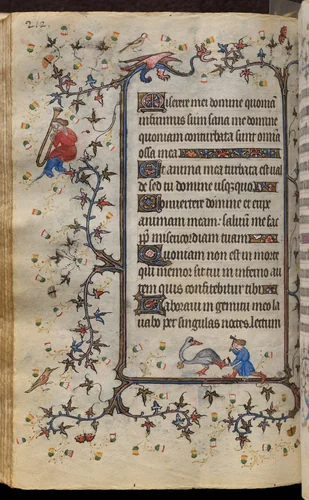 212.
Miserere mei domine quoniam
infirmus sum sana me domine
quoniam conturbata sunt omnia
ossa mea
Et anima mea turbata est ual
de sed tu domine usquequo
Conuertere domine et eripe
animam meam: saluum me fac
ppter misericordiam tuam
Quoniam non est in morte
qui memor sit tui in inferno au
tem quis confitebitur tibi
Laboraui in gemitu meo la
uabo per singulas noctes lectum